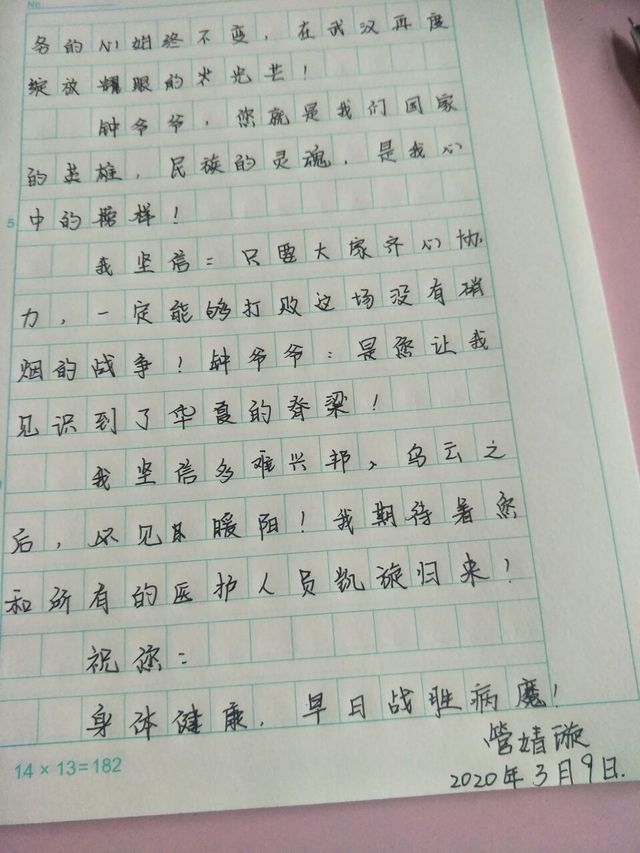 No.
务的心始终不变，在武汉再度
绽放耀眼的光芒！
钟爷爷，您就是我们国家
的英雄，民族的灵魂，是我心
5
中的榜样！
我坚信：只要大家齐心协
力，一定能够打败这场没有硝
烟的战争！钟爷爷：是您让我
见识到了华夏的脊梁！
我坚信多难兴邦、乌云之
后，必见暖阳！我期待着您
和所有的医护人员凯旋归来！
祝您：
身体健康，早日战胜病魔！
管婧璇
14 × 13=182
2020年3月9日.